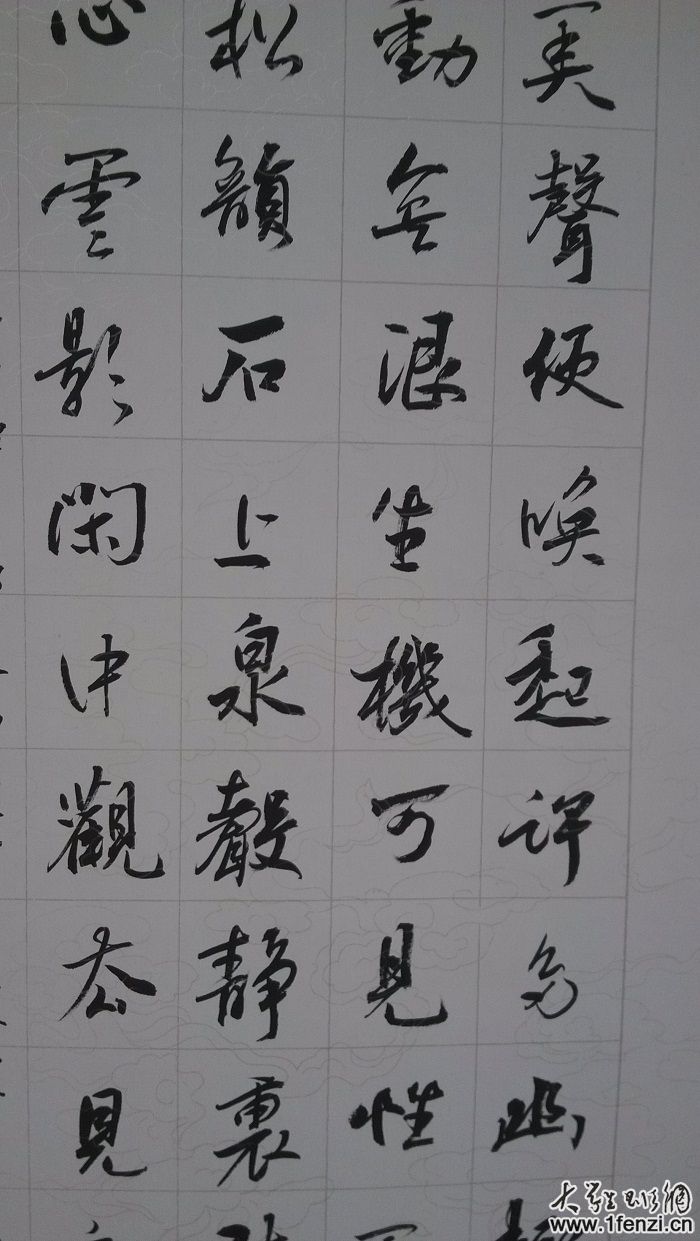 聲便喚起許多幽
動無限生機可見性
松韻石上泉聲靜裏
心雲影閑中觀去見
大學生創業網
www.1fenzi.cn